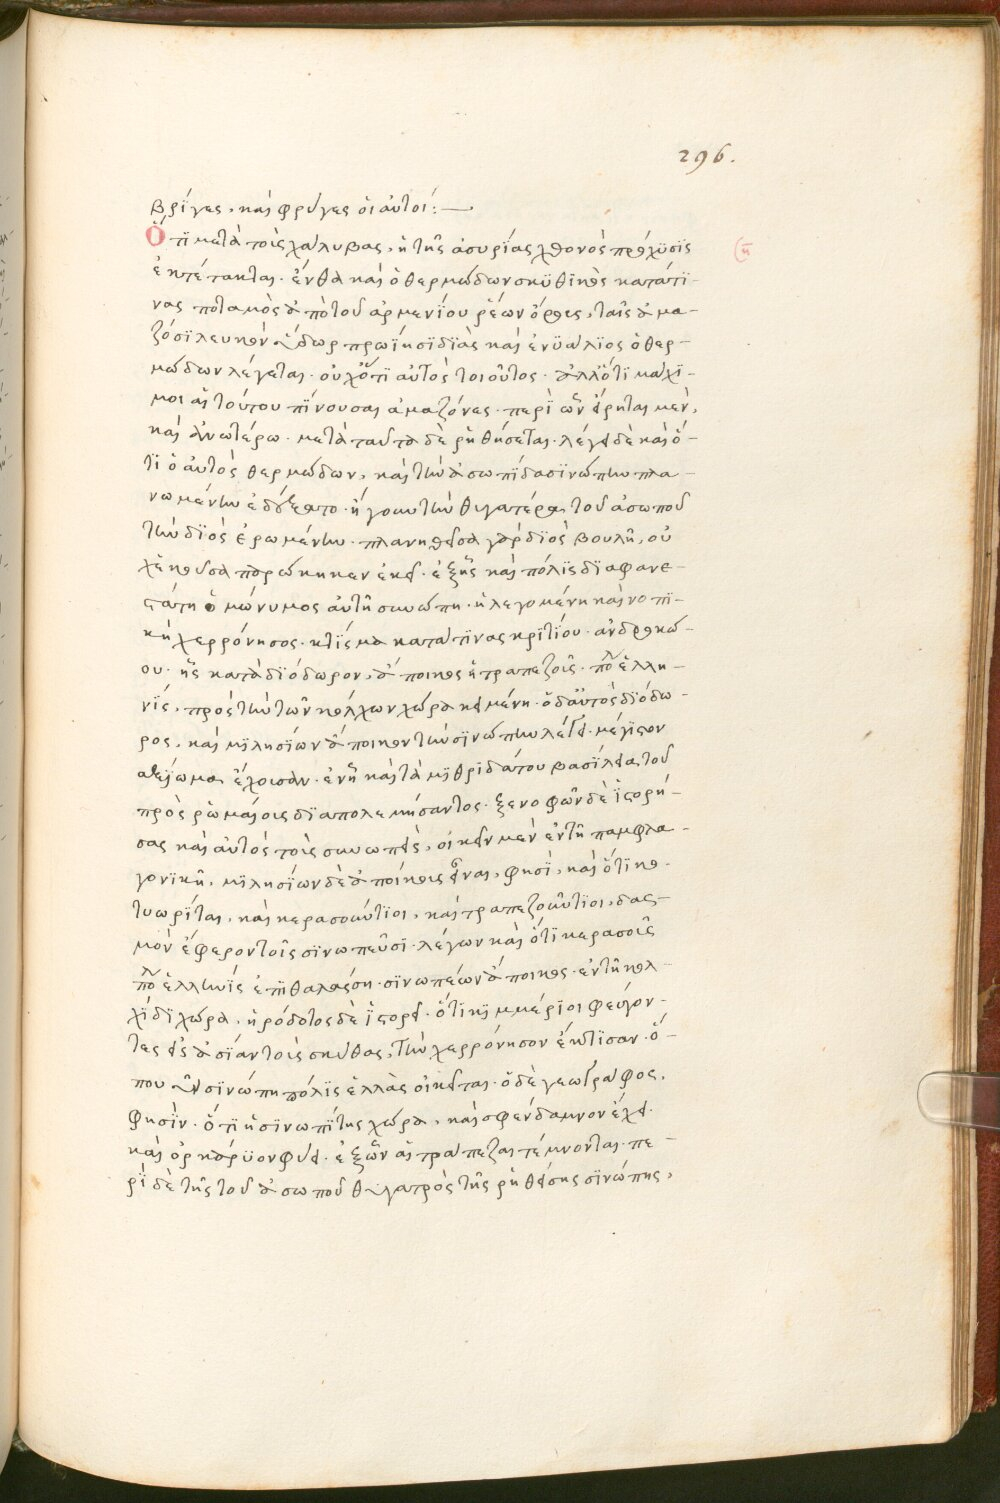 296.
βρίγες, καὶ φρύγες ὁι ἀυτοί:—
Ὅτι μετὰ τοὺς χάλυβας, ἡ τῆς ἀσυρίας χθονὸς πρόχϋσϊς
ἐκτέταται. ἔνθα καὶ ὁ θερμώδων σκϋθϊκὸς κατά τϊ-
νας ποταμὸς ἀπὸ τοῦ ἀρμενΐου ῥέων ὄρους, ταῖς ἀμα-
ζόσϊ λευκὸν ὕδωρ προΐησϊ διὰ καὶ ἐνϋάλϊος ὁ θερ-
μώδων λέγεται. οὐχ ὅτι αὐτὸς τοιοῦτος. ἀλλ' ὅτϊ μάχϊ-
μοι ἁι τούτου πΐνουσαι ἀμαζόνες. περὶ ὧν εἴρηται μὲν,
καὶ ἀνωτέρω. μετὰ ταῦτα δὲ ῥηθήσεται. λέγει δὲ καὶ ὅ-
τϊ ὁ αὐτὸς θερμώδων, καὶ τὴν ἀσωπΐδα σϊνώπην πλα-
νωμένην ἐδέξατο. ἤγουν τὴν θυγατέρα τοῦ ἀσωποῦ
τὴν διὸς ἐρωμένην. πλανηθεῖσα γὰρ διὸς βουλῇ, οὐ
χ' ἑκοῦσα παρώκηκεν ἐκεῖ. ἐξ ἧς καὶ πόλϊς διαφανε-
στάτη ὁμώνυμος ἀυτῇ σινώπη. ἡ λεγομένη καὶ ποντϊ-
κὴ χερρόνησος. κτίσμα κατά τϊνας κριτΐου. ἀνδρὸς κώ-
ου. ἧς κατὰ διόδωρον, ἄποικος ἡ τραπεζοῦς. πόλις ἑλλη-
νίς, πρὸς τὴν τῶν κόλχων χώρα κειμένη. ὁ δ' ἀυτὸς διόδω-
ρος, καὶ μϊλησίων ἄποικον τὴν σϊνώπην λέγει. μέγιστον
ἀξίωμα ἔχουσαν. ἐν ᾗ καὶ τὰ μϊθρϊδάτου βασίλεια, τοῦ
πρὸς ῥωμαίους διαπολεμήσαντος. ξενοφῶν δὲ ἱστορή-
σας καὶ αὐτὸς τοὺς σινωπεῖς, οἰκεῖν μὲν ἐν τῇ παμφλα-
γονϊκῇ, μϊλησίων δὲ ἀποίκους εἶναι, φησὶ, καὶ ὅτϊ κο-
τυωρίται, καὶ κερασούντϊοι, καὶ τραπεζούντϊοι, δασ-
μὸν ἔφερον τοῖς σϊνωπεῦσϊ. λέγων καὶ ὅτϊ κερασοῦς
πόλις ἑλληνὶς ἐπϊθαλάσση. σϊνωπέων ἄποικος. ἐν τῇ κολ-
χΐδϊ χώρα. ἡρόδοτος δὲ ἱστορεῖ. ὅτϊ κϊμμέριοι φεύγον-
τες εἰς ἀσίαν τοὺς σκύθας, τὴν χερρόνησον ἔκτϊσαν. ὅ-
που νῦν σϊνώπη πόλϊς ἑλλὰς οἰκεῖται. ὁ δὲ γεωγράφος,
φησϊν. ὅτϊ ἡ σϊνωπῖτις χώρα, καὶ σφένδαμνον ἔχει.
καὶ ὀροκάρϋον φύει. ἐξ ὧν ἁι τράπεζαι τέμνονται. πε-
ρὶ δὲ τῆς τοῦ ἀσωποῦ θυγατρὸς τῆς ῥηθείσης σϊνώπης,